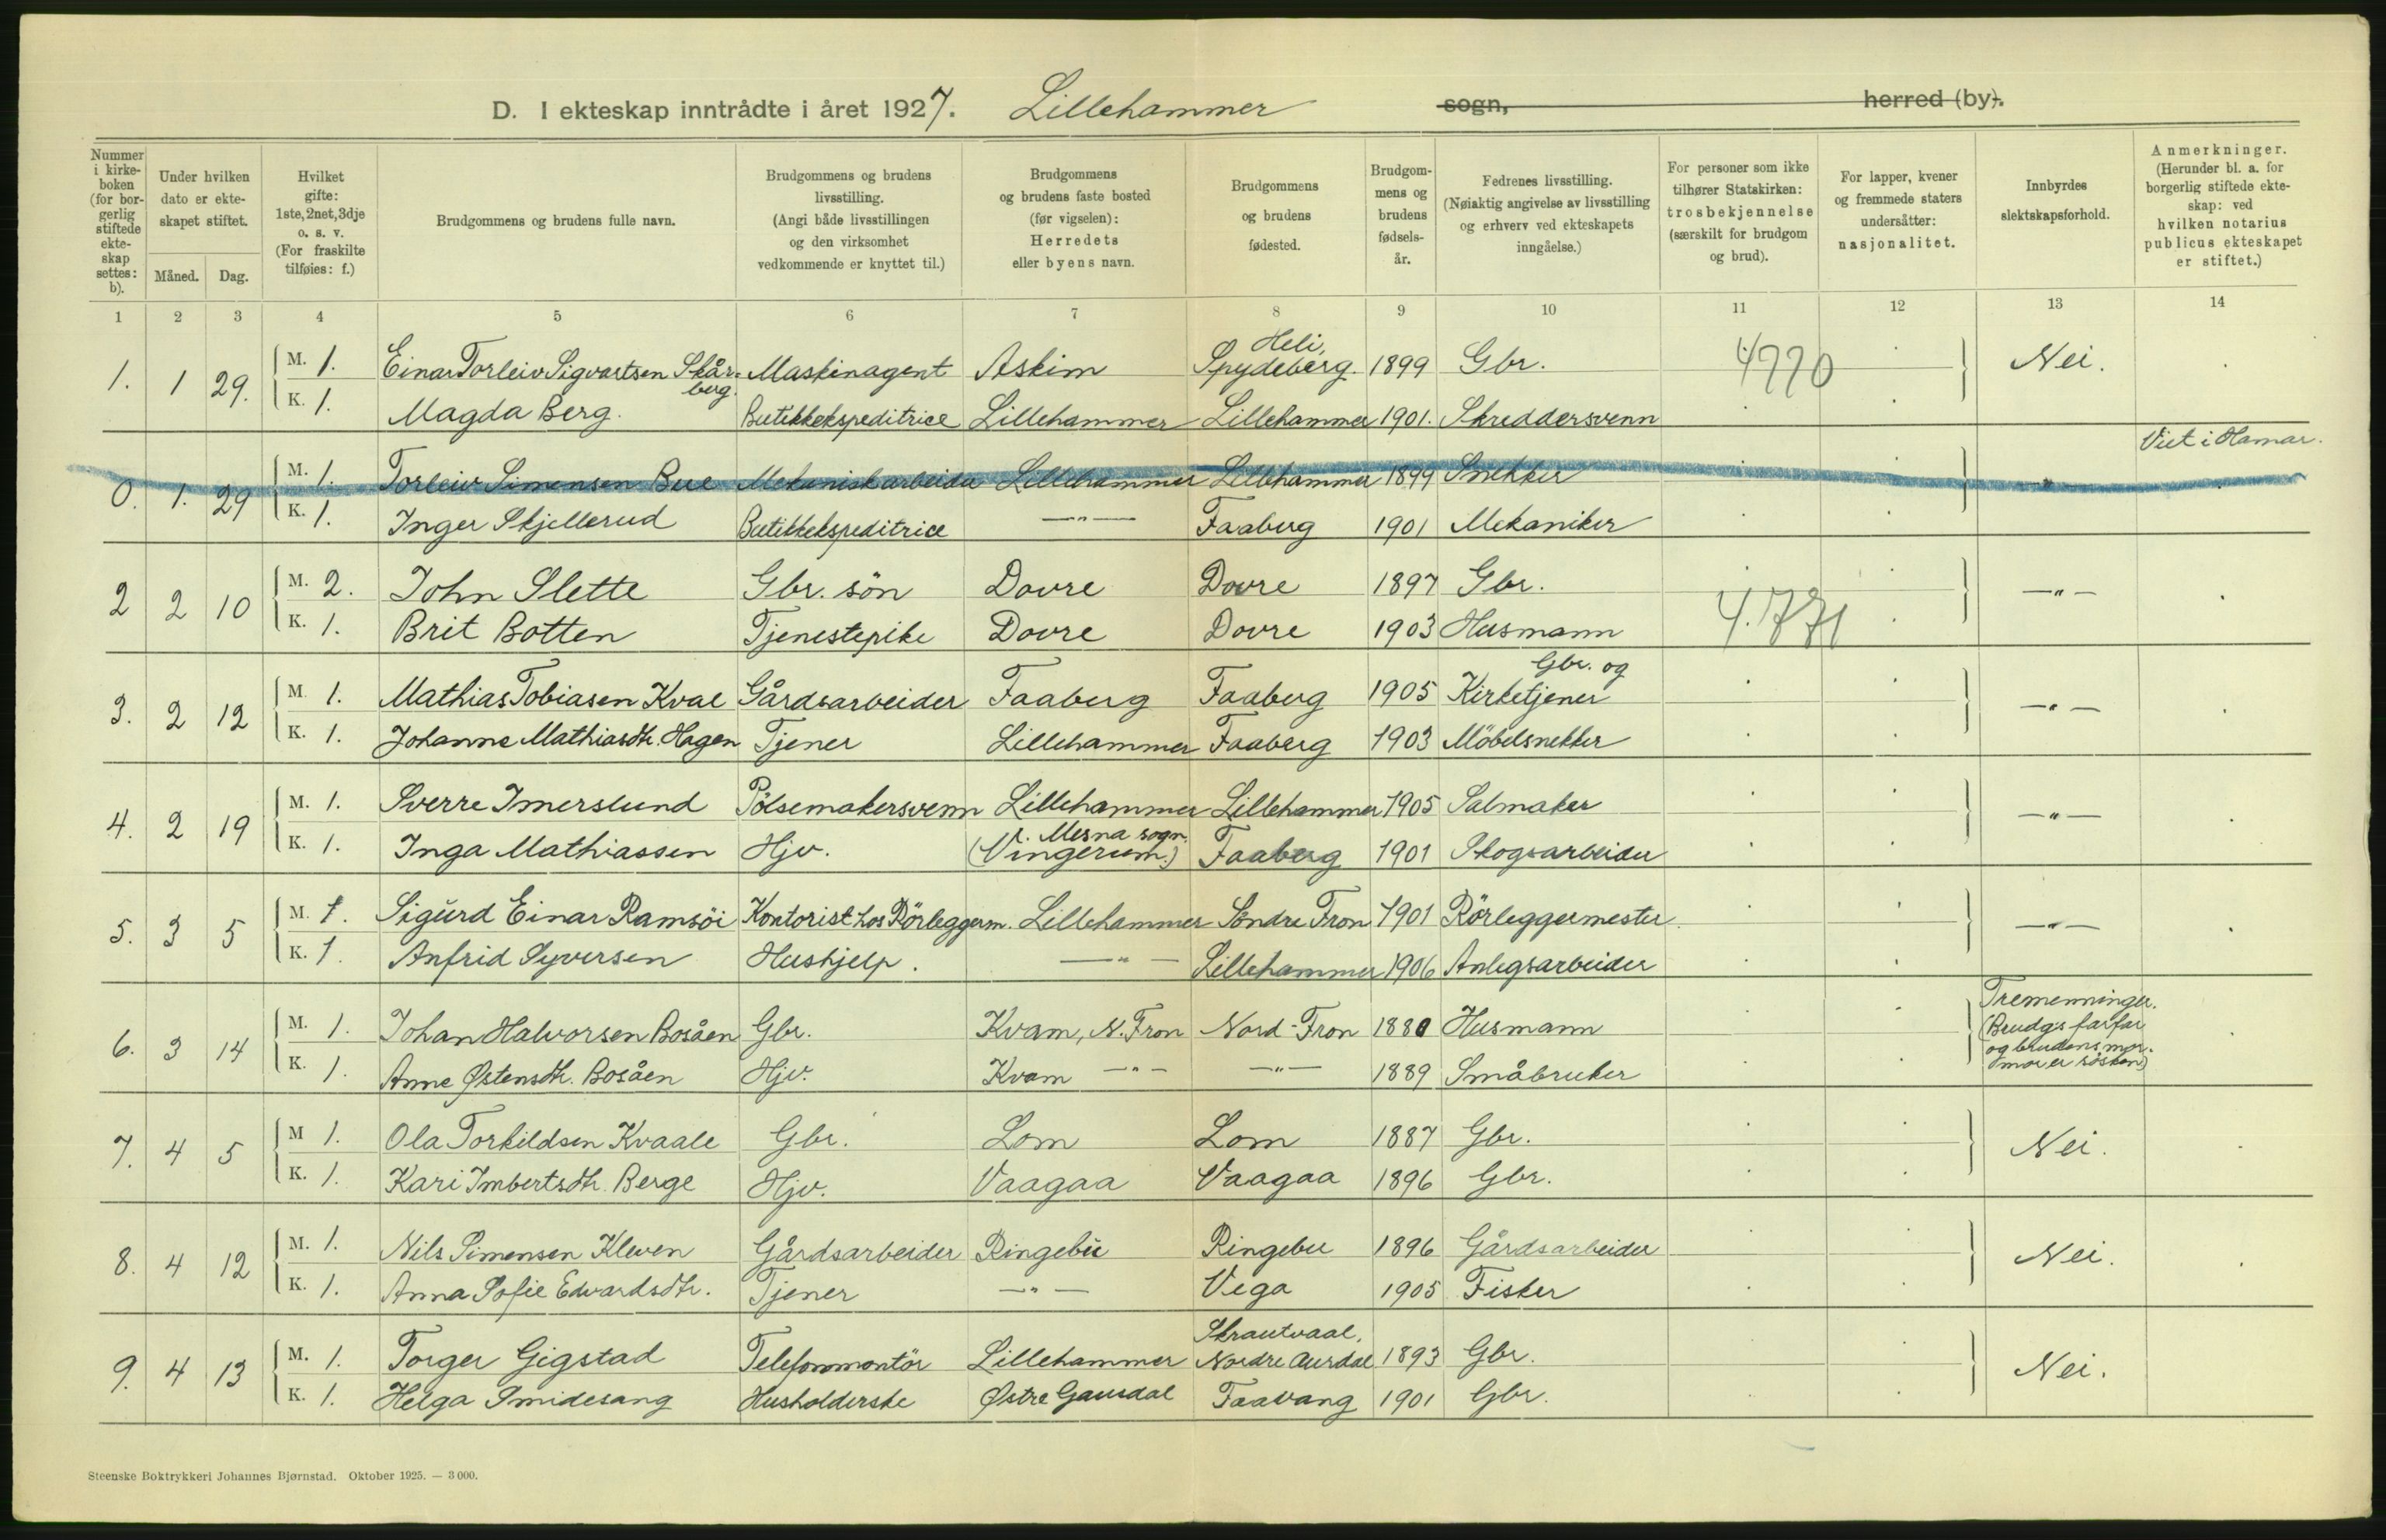 D. I ekteskap inntrådte i året 1927. Lillehammer sogn, herred (by).
Nummer i kirke-boken (for bor-gerlig stiftede ekte-skap settes: b).
Under hvilken dato er ekte-skapet stiftet.
Måned. Dag.
Hvilket gifte: 1ste, 2net, 3dje o. s. v. (For fraskilte tilføies: f.)
Brudgommens og brudens fulle navn.
Brudgommens og brudens livsstilling. (Angi både livsstillingen og den virksomhet vedkommende er knyttet til.)
Brudgommens og brudens faste bosted (før vigselen): Herredets eller byens navn.
Brudgommens og brudens fødested.
Brudgom-mens og brudens fødsels-år.
Fedrenes livsstilling. (Nøiaktig angivelse av livsstilling og erhverv ved ekteskapets inngåelse.)
For personer som ikke tilhører Statskirken: trosbekjennelse (særskilt for brudgom og brud).
For lapper, kvener og fremmede staters undersåtter: nasjonalitet.
Innbyrdes slektskapsforhold.
Anmerkninger. (Herunder bl. a. for borgerlig stiftede ekte-skap: ved hvilken notarius publicus ekteskapet er stiftet.)
1 2 3 4 5 6 7 8 9 10 11 12 13 14
1. 1 29. M. 1. Einar Torleiv Sigvartsen Skår-berg. Maskinagent Askim Heli, Spydeberg. 1899 Gbr. 4770 Nei.
K. 1. Magda Berg. Butikkekspeditrice Lillehammer Lillehammer 1901. Skreddersvenn
0. 1. 29 M. 1. Torleiv Simensen Bue Mekanisk arbeider Lillehammer Lillehammer 1899 Snekker —"— Viet i Hamar.
K. 1. Inger Skjellerud Butikkekspeditrice —"— Faaberg 1901 Mekaniker
2 2 10 M. 2. John Slette Gbr. sön Dovre Dovre 1897 Gbr. —"—
K. 1. Brit Botten Tjenestepike Dovre Dovre 1903 Husmann 4.771
3. 2 12 M. 1. Mathias Tobiasen Kvae Gårdsarbeider Faaberg Faaberg 1905 Gbr. og Kirketjener —"—
K. 1. Johanne Mathiasdtr. Hagen Tjener Lillehammer Faaberg 1903 Möbelsnekker
4. 2 19 M. 1. Sverre Imerslund Pölsemakersvenn Lillehammer Lillehammer 1905 Salmaker —"—
K. 1. Inga Mathiassen Hjv. (V. Mesna sogn. Vingerum.) Faaberg 1901 Skogsarbeider
5. 3 5 M. 1. Sigurd Einar Ramsöi Kontorist hos Rörleggerm. Lillehammer Söndre Fron 1901 Rörleggermester —"—
K. 1. Anfrid Syversen Hushjelp. —"— Lillehammer 1906 Anlegsarbeider
6. 3 14 M. 1. Johan Halvorsen Bosåen Gbr. Kvam, N. Fron Nord-Fron 1880 Husmann Tremenninger. (Brudg.s farfar og brudens mor-mor er sösken)
K. 1. Anne Østensdtr. Bosåen Hjv. Kvam —"— —"— 1889 Småbruker
7. 4 5 M 1. Ola Torkildsen Kvaale Gbr. Lom Lom 1887 Gbr. Nei.
K. 1. Kari Imbertsdtr. Berge Hjv. Vaagaa Vaagaa 1896 Gbr.
8. 4 12 M. 1. Nils Simensen Kleven Gårdsarbeider Ringebu Ringebu 1896 Gårdsarbeider Nei.
K. 1. Anna Sofie Edvardsdtr. Tjener —"— Vega 1905 Fisker
9. 4 13 M. 1. Torger Gigstad Telefonmontör Lillehammer Skrautvaal, Nordre Aurdal 1893 Gbr. Nei.
K. 1. Helga Smidesang Husholderske Østre Gausdal Faavang 1901 Gbr.
Steenske Boktrykkeri Johannes Bjørnstad. Oktober 1925. — 3 000.